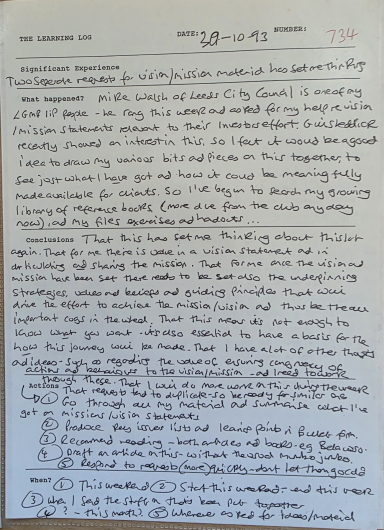 THE LEARNING LOG DATE: 29-10-93 NUMBER: 734
Significant Experience
Two separate requests for vision/mission material has set me thinking
What happened? Mike Walsh of Leeds City Council is one of my
LGMB IIP people - he rang this week and asked for my help re vision
/mission statements relevant to their Investors effort.
recently showed an interest in this. So I felt it would be a good
idea to draw my various bits and pieces on this together, to
see just what I have got and how it could be meaningfully
made available for clients. So I've begun to search my growing
library of reference books (more due from the club any day
now), and my files exercises and handouts...
Conclusions That this has set me thinking about this lot
again. That for me there is value in a vision statement and in
articulating and sharing the mission. That for me once the vision and
mission have been set there needs to be set also the underpinning
strategies, values and beliefs and guiding principles that will
drive the effort to achieve the mission/vision and thus be the all
important cogs in the wheel. That this means it's not enough to
know what you want - it's also essential to have a basis for the
how this journey will be made. That I have a lot of other thoughts
and ideas - such as regarding the value of ensuring congruency of
actions and behaviours to the vision/mission - and I need to
through these. That I will do more work on this during the week
Actions That requests tend to duplicate - so be ready for similar one
① Go through all my material and summarise what I've
got on missions/vision statements
② Produce key issues lists and learning points in bullet form.
③ Recommend reading - both articles and books - eg
④ Draft an article on this - without the usual mumbo jumbo
⑤ Respond to requests (more) quickly - don't let them go cold
When? ① This weekend ② Start this weekend - end this week
③ When I send the stuff on that's been put together
④ ? - this month? ⑤ Whenever asked for ideas/material